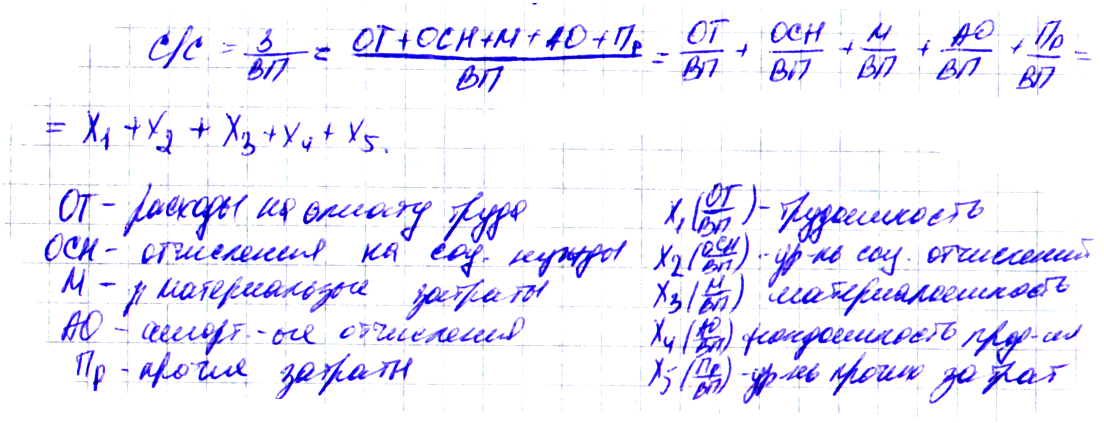 С/С = З/ВП = (ОТ+ОСН+М+АО+Пр)/ВП = ОТ/ВП + ОСН/ВП + М/ВП + АО/ВП + Пр/ВП =
= X₁ + X₂ + X₃ + X₄ + X₅.
ОТ – расходы на оплату труда
ОСН – отчисления на соц. нужды
М – материальные затраты
АО – аморт.-ые отчисления
Пр – прочие затраты
X₁ (ОТ/ВП) – трудоемкость
X₂ (ОСН/ВП) – ур-нь соц. отчислений
X₃ (М/ВП) материалоемкость
X₄ (АО/ВП) фондоемкость прод-ии
X₅ (Пр/ВП) – ур-нь прочих затрат